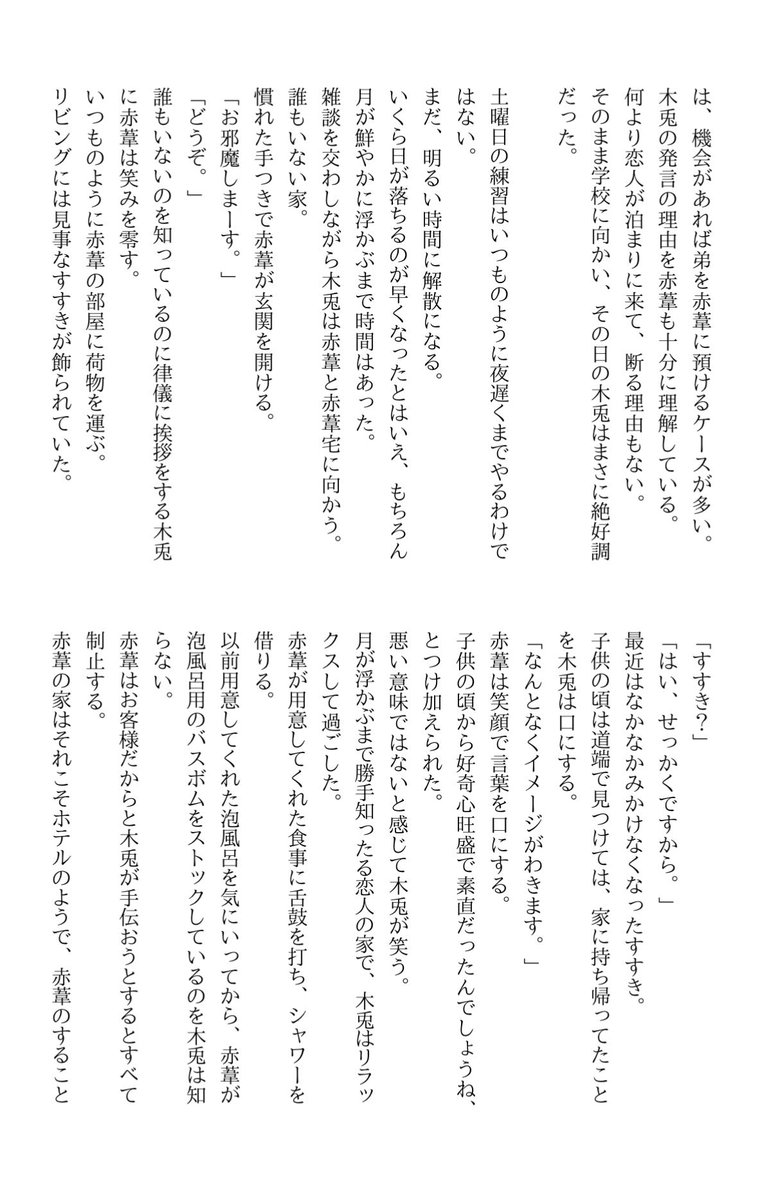 は、機会があれば弟を赤葦に預けるケースが多い。
木兎の発言の理由を赤葦も十分に理解している。
何より恋人が泊まりに来て、断る理由もない。
そのまま学校に向かい、その日の木兎はまさに絶好調
だった。
土曜日の練習はいつものように夜遅くまでやるわけで
はない。
まだ、明るい時間に解散になる。
いくら日が落ちるのが早くなったとはいえ、もちろん
月が鮮やかに浮かぶまで時間はあった。
雑談を交わしながら木兎は赤葦と赤葦宅に向かう。
誰もいない家。
慣れた手つきで赤葦が玄関を開ける。
「お邪魔しまーす。」
「どうぞ。」
誰もいないのを知っているのに律儀に挨拶をする木兎
に赤葦は笑みを零す。
いつものように赤葦の部屋に荷物を運ぶ。
リビングには見事なすすきが飾られていた。
「すすき？」
「はい、せっかくですから。」
最近はなかなかみかけなくなったすすき。
子供の頃は道端で見つけては、家に持ち帰ってたこと
を木兎は口にする。
「なんとなくイメージがわきます。」
赤葦は笑顔で言葉を口にする。
子供の頃から好奇心旺盛で素直だったんでしょうね、
とつけ加えられた。
悪い意味ではないと感じて木兎が笑う。
月が浮かぶまで勝手知ったる恋人の家で、木兎はリラッ
クスして過ごした。
赤葦が用意してくれた食事に舌鼓を打ち、シャワーを
借りる。
以前用意してくれた泡風呂を気にいってから、赤葦が
泡風呂用のバスボムをストックしているのを木兎は知
らない。
赤葦はお客様だからと木兎が手伝おうとするとすべて
制止する。
赤葦の家はそれこそホテルのようで、赤葦のすること